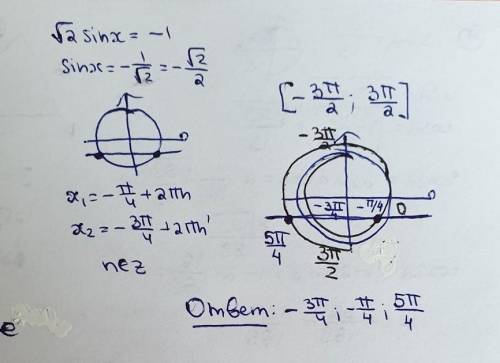 √2 sinx = -1
sinx = -1/√2 = -√2/2
x₁ = -π/4 + 2πn
x₂ = -3π/4 + 2πn
n∈z
[-3π/2; 3π/2]
-3π/2
-3π/4 -π/4 0
5π/4
3π/2
Ответ: -3π/4; -π/4; 5π/4
e